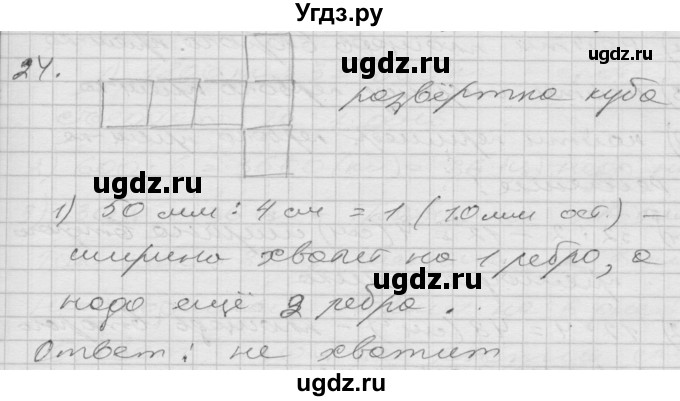 Угдз.ру
24.
ugdz.ru
ugdz.ru
развёртка куба
ugdz.ru
ugdz.ru
1) 50 мм : 4 см = 1 (10мм ост.) –
ширина хватит на 1 ребро, а
ugdz.ru
надо ещё 2 ребра.
ugdz.ru
Ответ: не хватит
ugdz.ru